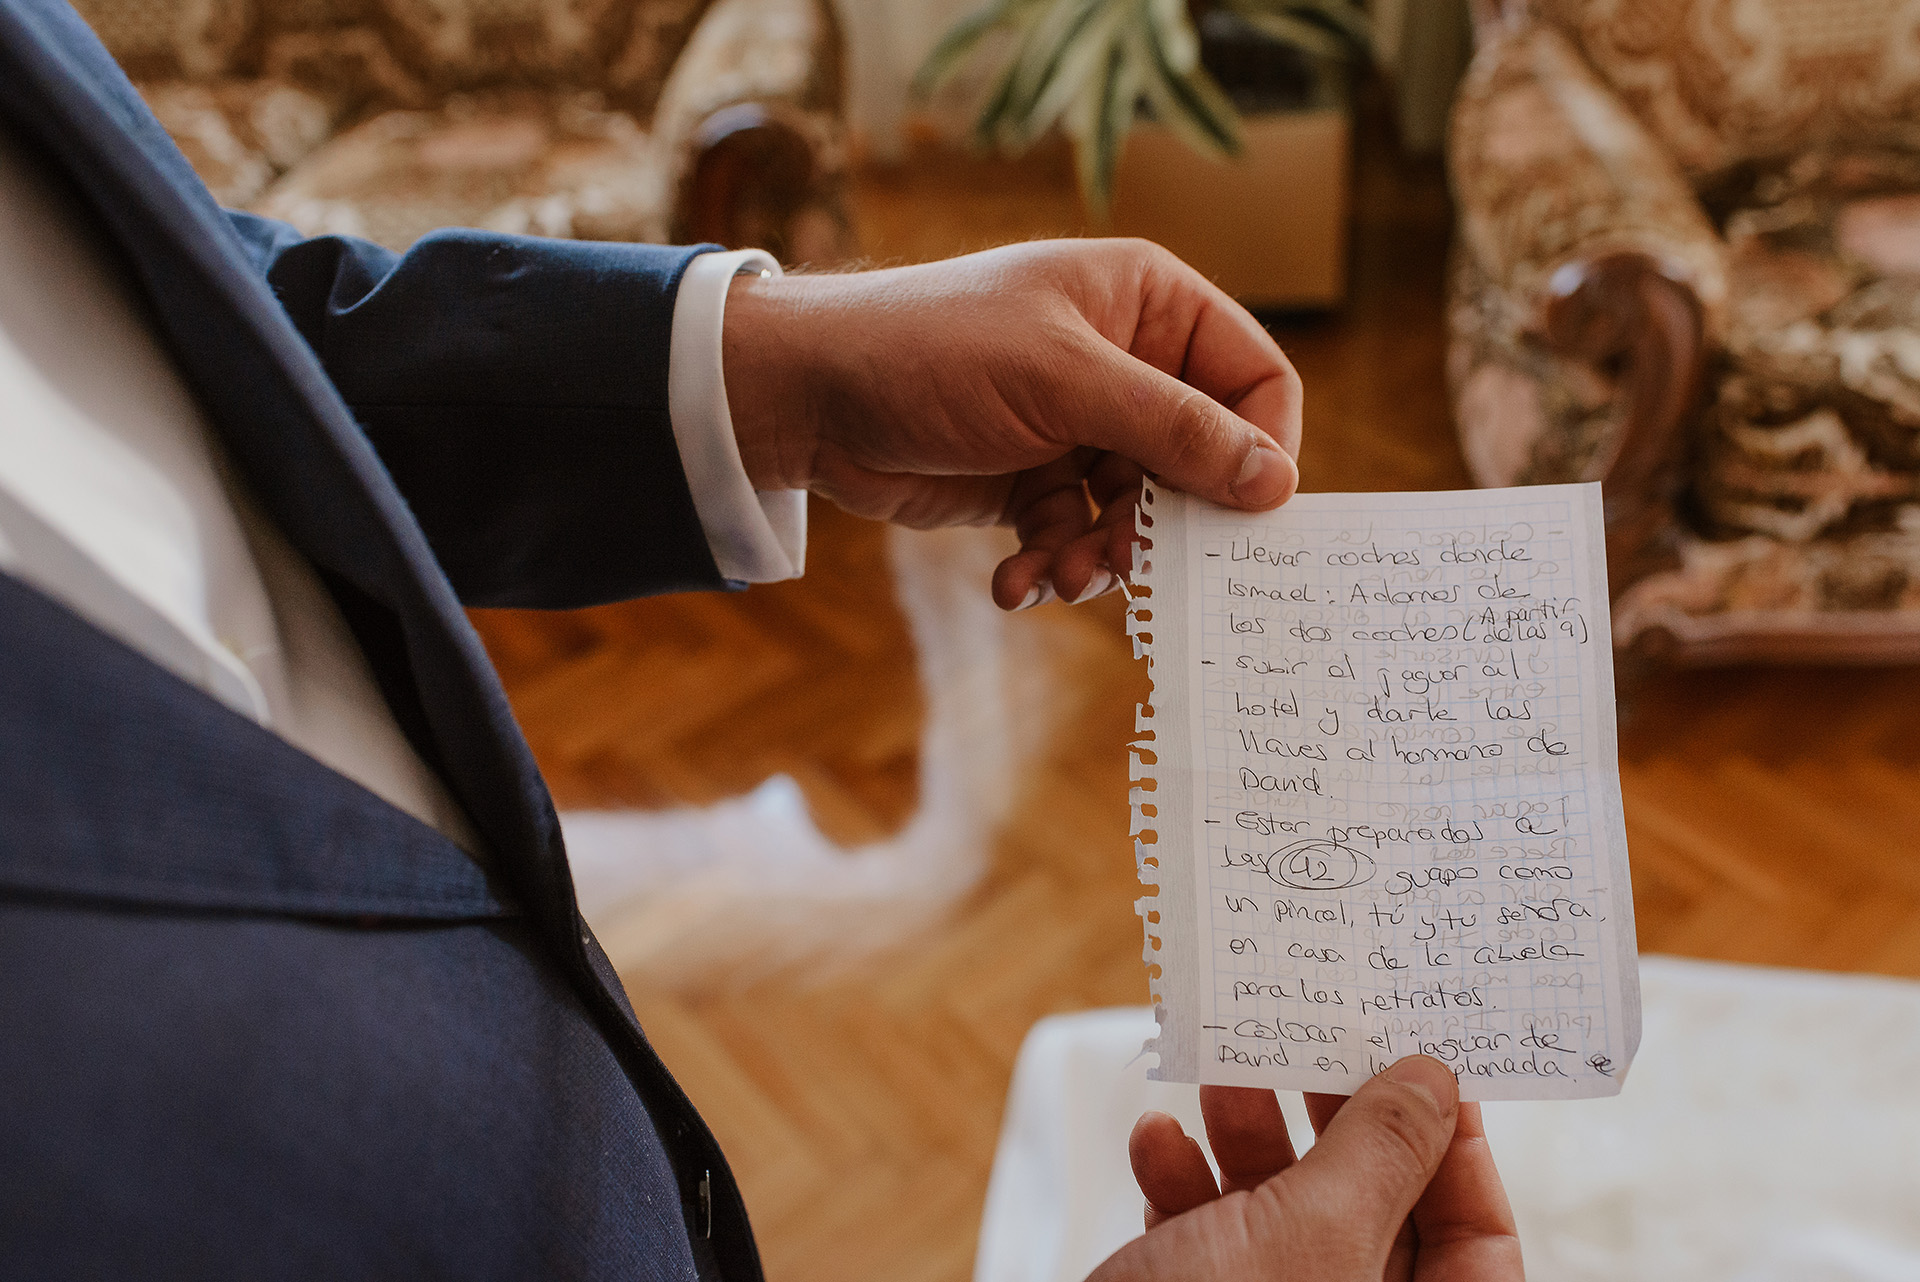 - Llevar coches donde
Ismael: Adornos de
los dos coches (A partir de las 9)
- Subir el jaguar al
hotel y darle las
llaves al hermano de
David.
- Estar preparados a
las 12 guapo como
un pincel, tú y tu señora,
en casa de la abuela
para los retratos.
- Colocar el jaguar de
David en la